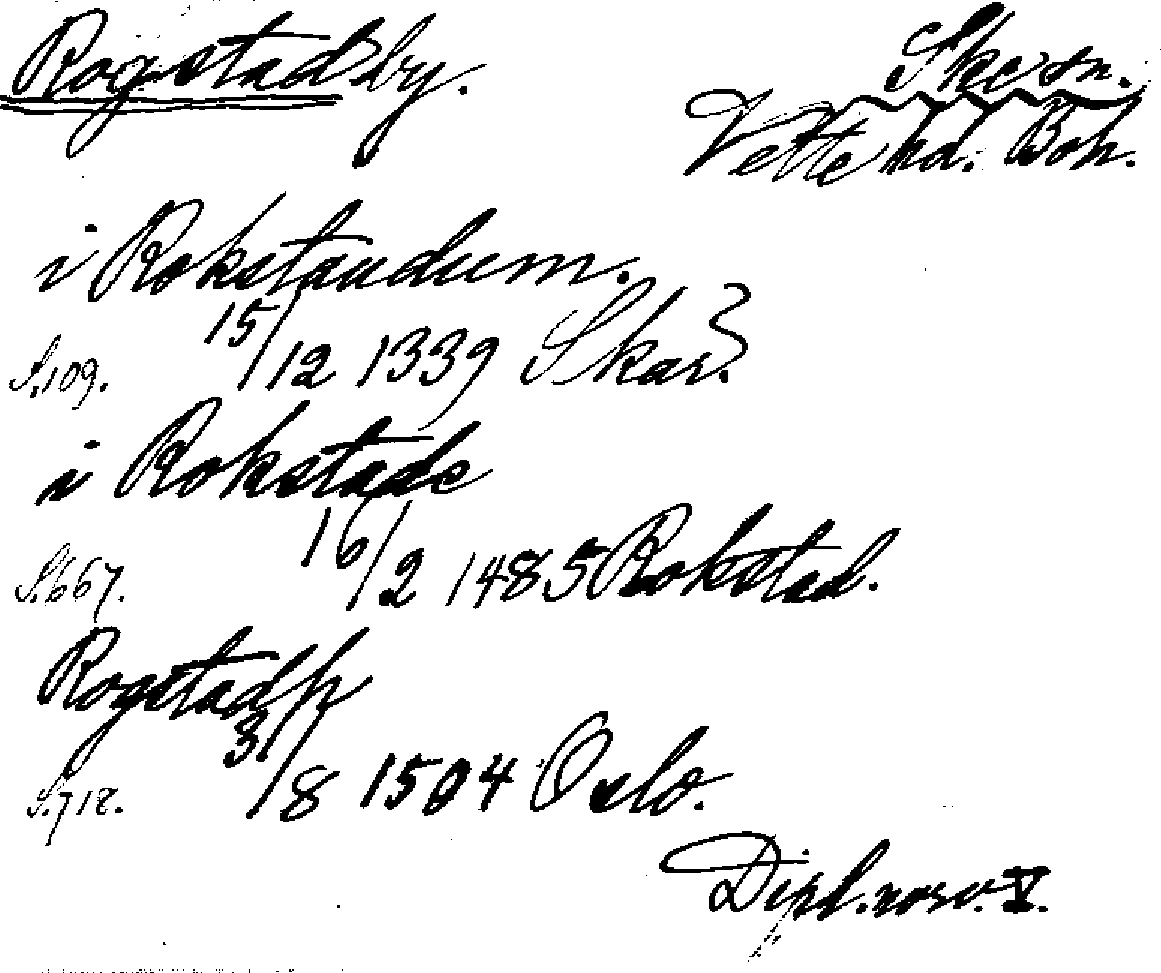 Rogstad by.
Skee sn.
Vette hd. Boh.
i Rokstaudum.
S. 109. 15/12 1339 Skar?
i Rokstade
S. 667. 16/2 1485 Rokstad.
Rogstadh
S. 712. 31/8 1504 Oslo.
Dipl. norv. V.